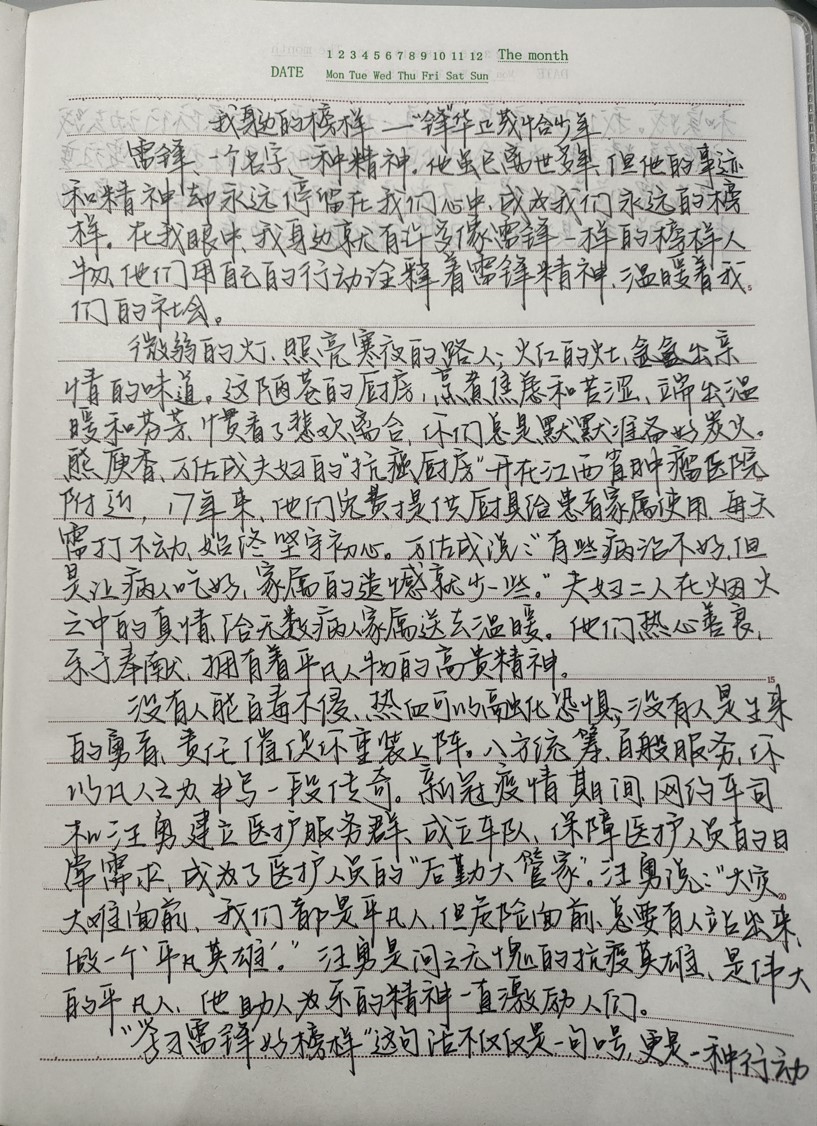 1 2 3 4 5 6 7 8 9 10 11 12 The month
DATE Mon Tue Wed Thu Fri Sat Sun
我身边的榜样——“锋”华正茂恰少年
雷锋、一个名字、一种精神。他虽已离世多年、但他的事迹
和精神却永远停留在我们心中、成为我们永远的榜
样。在我眼中、我身边就有许多像雷锋一样的榜样人
物、他们用自己的行动诠释着雷锋精神、温暖着我
们的社会。
微弱的灯、照亮寒夜的路人；火红的灶、氤氲出亲
情的味道。这陋巷的厨房、烹煮焦急和苦涩、端出温
暖和芬芳、惯看了悲欢离合、你们总是默默准备好炭火。
熊庚香、万佐成夫妇的“抗癌厨房”开在江西省肿瘤医院
附近，17年来、他们免费提供厨具给患者家属使用、每天
雷打不动、始终坚守初心。万佐成说：“有些病治不好、但
是让病人吃好、家属的遗憾就少一些。”夫妇二人在烟火
之中的真情、给无数病人家属送去温暖。他们热心善良、
乐于奉献、拥有着平凡人物的高贵精神。
15
没有人能百毒不侵、热血可以融化恐惧；没有人是生来
的勇者、责任催促你重装上阵。八方统筹、百般服务、你
以凡人之力书写一段传奇。新冠疫情期间、网约车司
机汪勇建立医护服务群、成立车队、保障医护人员的日
常需求、成为了医护人员的“后勤大管家”。汪勇说：“大灾
20
大难面前、我们都是平凡人、但危险面前、总要有人站出来、
做一个‘平凡英雄’。”汪勇是问之无愧的抗疫英雄、是伟大
的平凡人、他助人为乐的精神一直激励人们。
“学习雷锋好榜样”这句话不仅仅是一句口号、更是一种行动